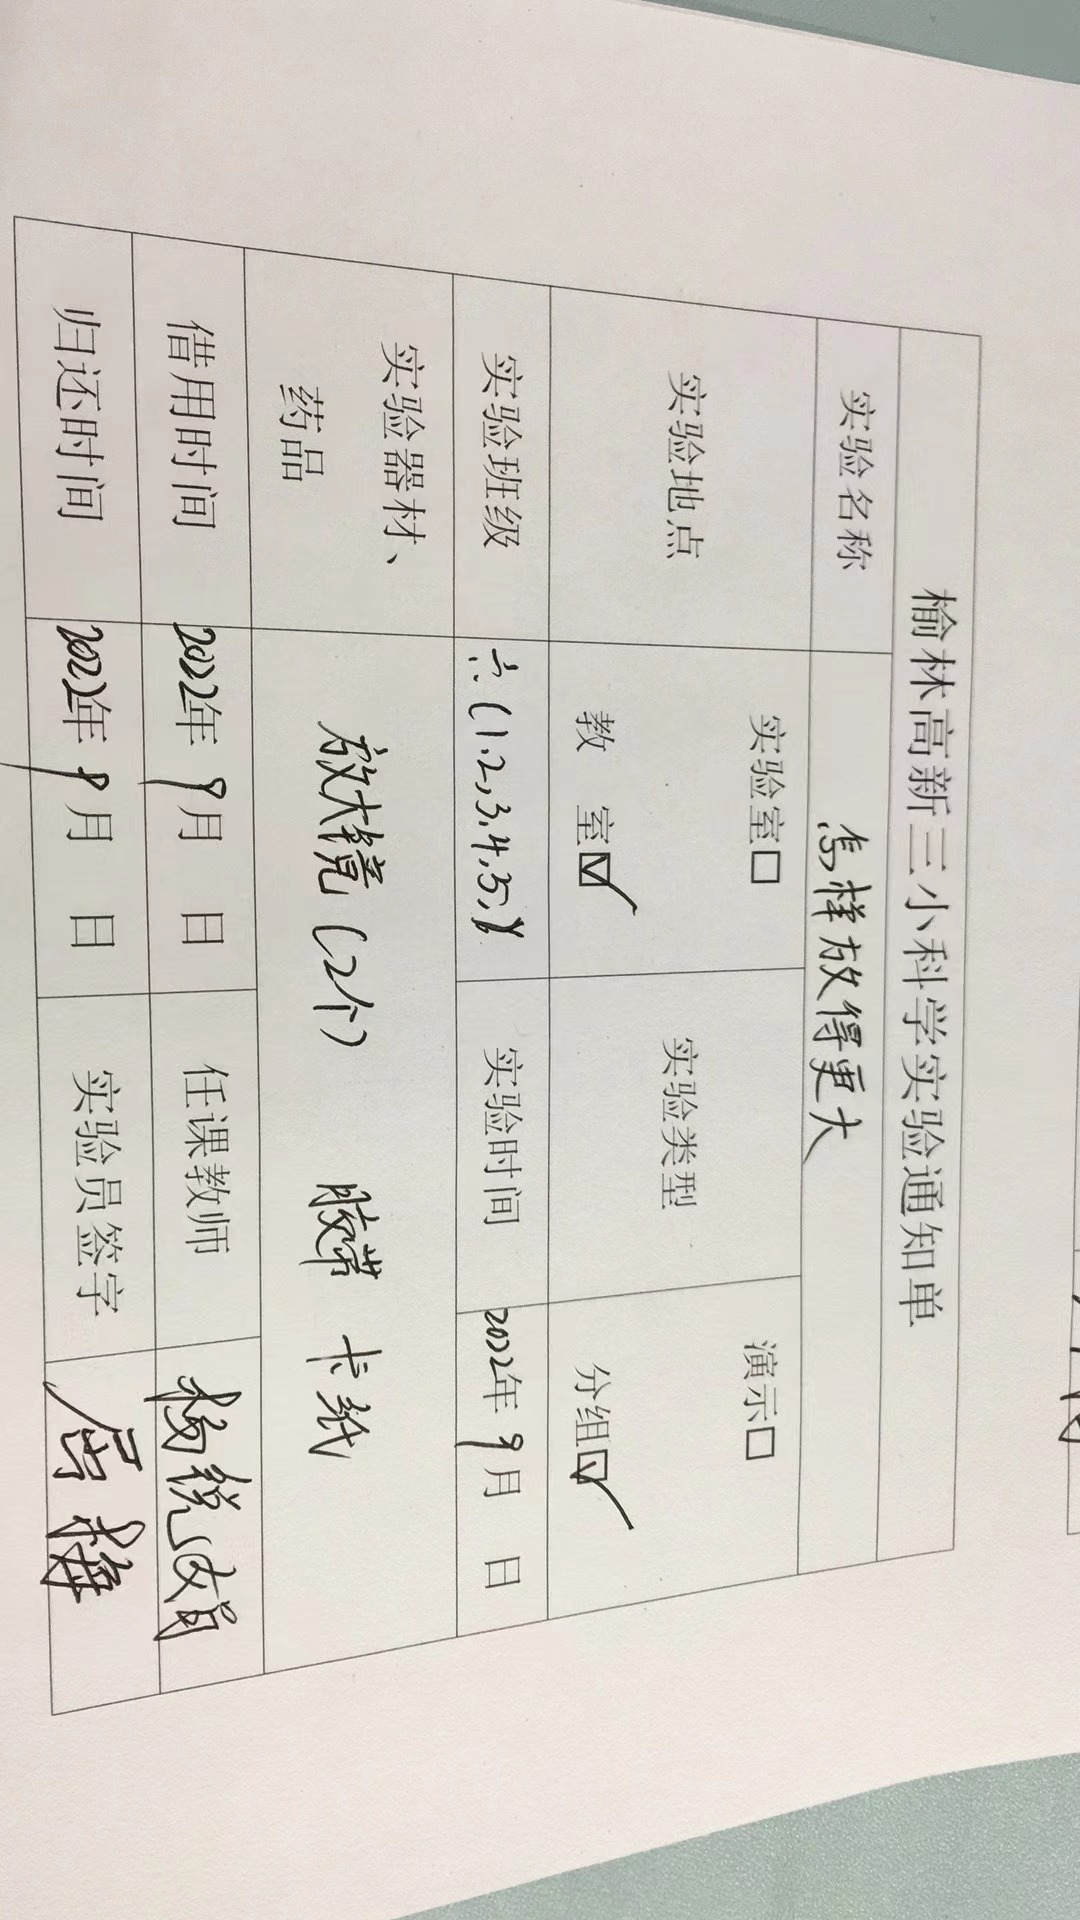 榆林高新三小科学实验通知单
实验名称 怎样放得更大
实验地点 实验室□ 教 室☑ 实验类型 演示□ 分组☑
实验班级 六(1.2,3.4,5, 实验时间 2022年9月 日
实验器材、药品 放大镜(2个) 胶带 卡纸
借用时间 2022年9月 日 任课教师 杨
归还时间 2022年9月 日 实验员签字